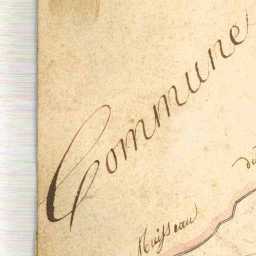 Commune
du
Ruisseau